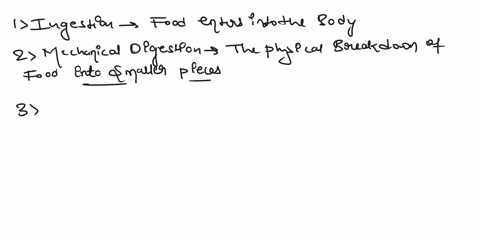 1> Ingestion → Food enters into the Body
2> Mechanical Digestion → The physical Breakdown of
Food Into smaller pieces
3>